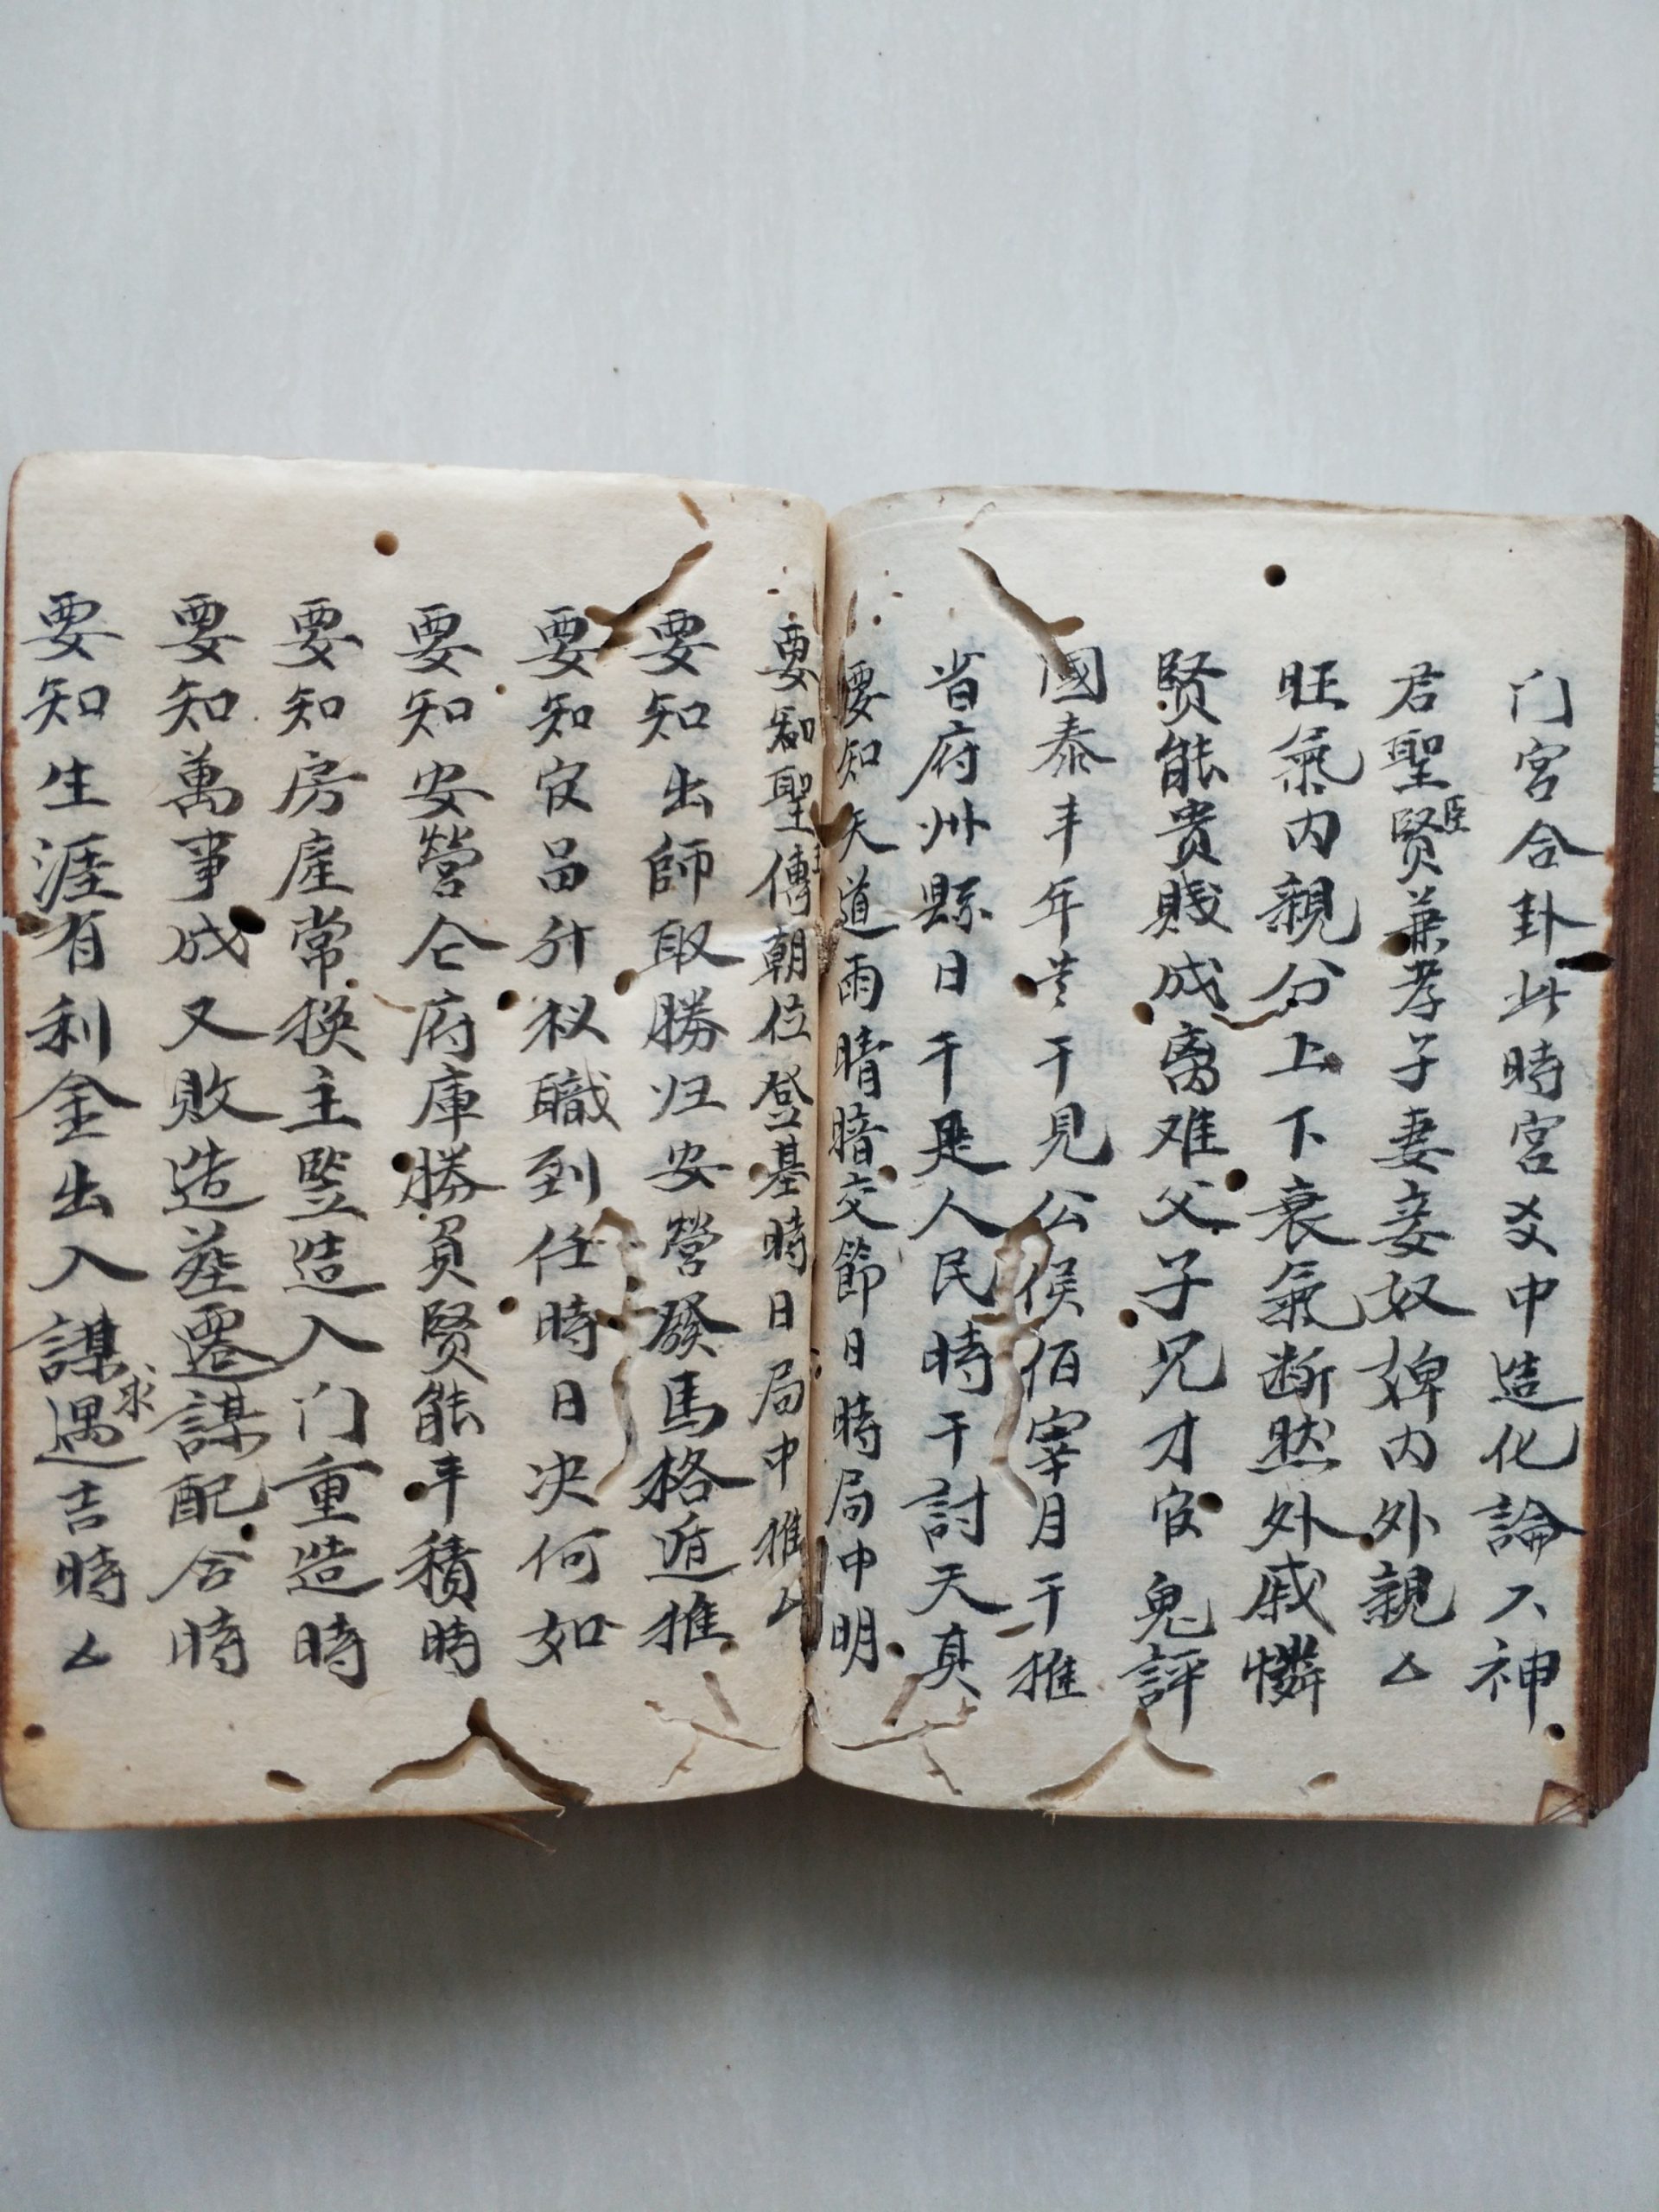 门宫合卦此時宫爻中造化論六神
君聖賢臣兼孝子妻妾奴婢内外親厶
旺氣内親分上下衰氣断然外戚憐
賢能贵賤成离难父子兄才官鬼評
國泰丰年岁干見公侯伯宰月干推
省府州縣日干是人民時干討天真
要知天道雨晴暗交節日時局中明
要知聖主傳朝位登基時日局中推厶
要知出師取勝归安營發馬格遁推
要知官品升权職到任時日决何如
要知安營仓府庫勝負賢能丰積時
要知房産常换主竪造入门重造時
要知萬事成又敗造葬遷謀配合時
要知生涯有利金出入謀求遇吉時厶